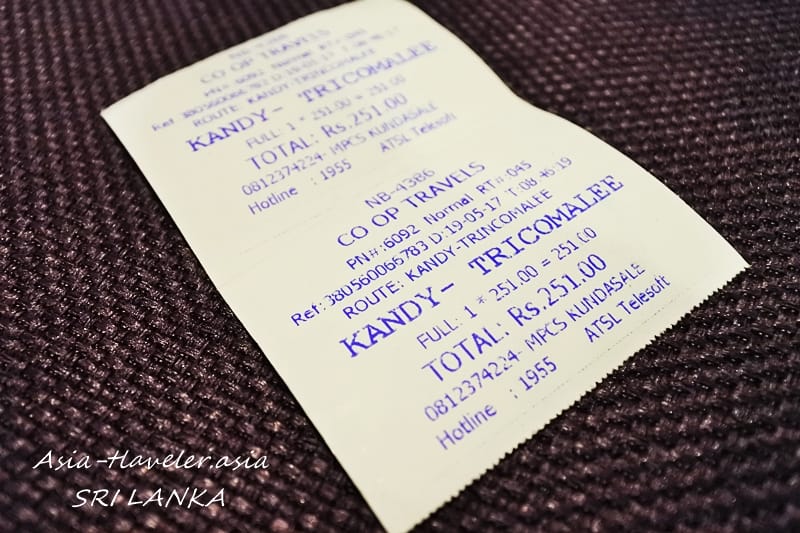 CO OP TRAVELS
PN#:6092 Normal RT#:045
ROUTE: KANDY-TRINCOMALEE
KANDY- TRICOMALEE
FULL: 1 * 251.00 = 251.00
TOTAL: Rs.251.00
0812374224- MPCS KUNDASALE
Hotline : 1955 ATSL Telesoft
NB-4386
CO OP TRAVELS
PN#:6092 Normal RT#:045
Ref:380560066783 D:19-05-17 T:08:46:19
ROUTE: KANDY-TRINCOMALEE
KANDY- TRICOMALEE
FULL: 1 * 251.00 = 251.00
TOTAL: Rs.251.00
0812374224- MPCS KUNDASALE
Hotline : 1955 ATSL Telesoft
Asia-Haveler.asia
SRI LANKA